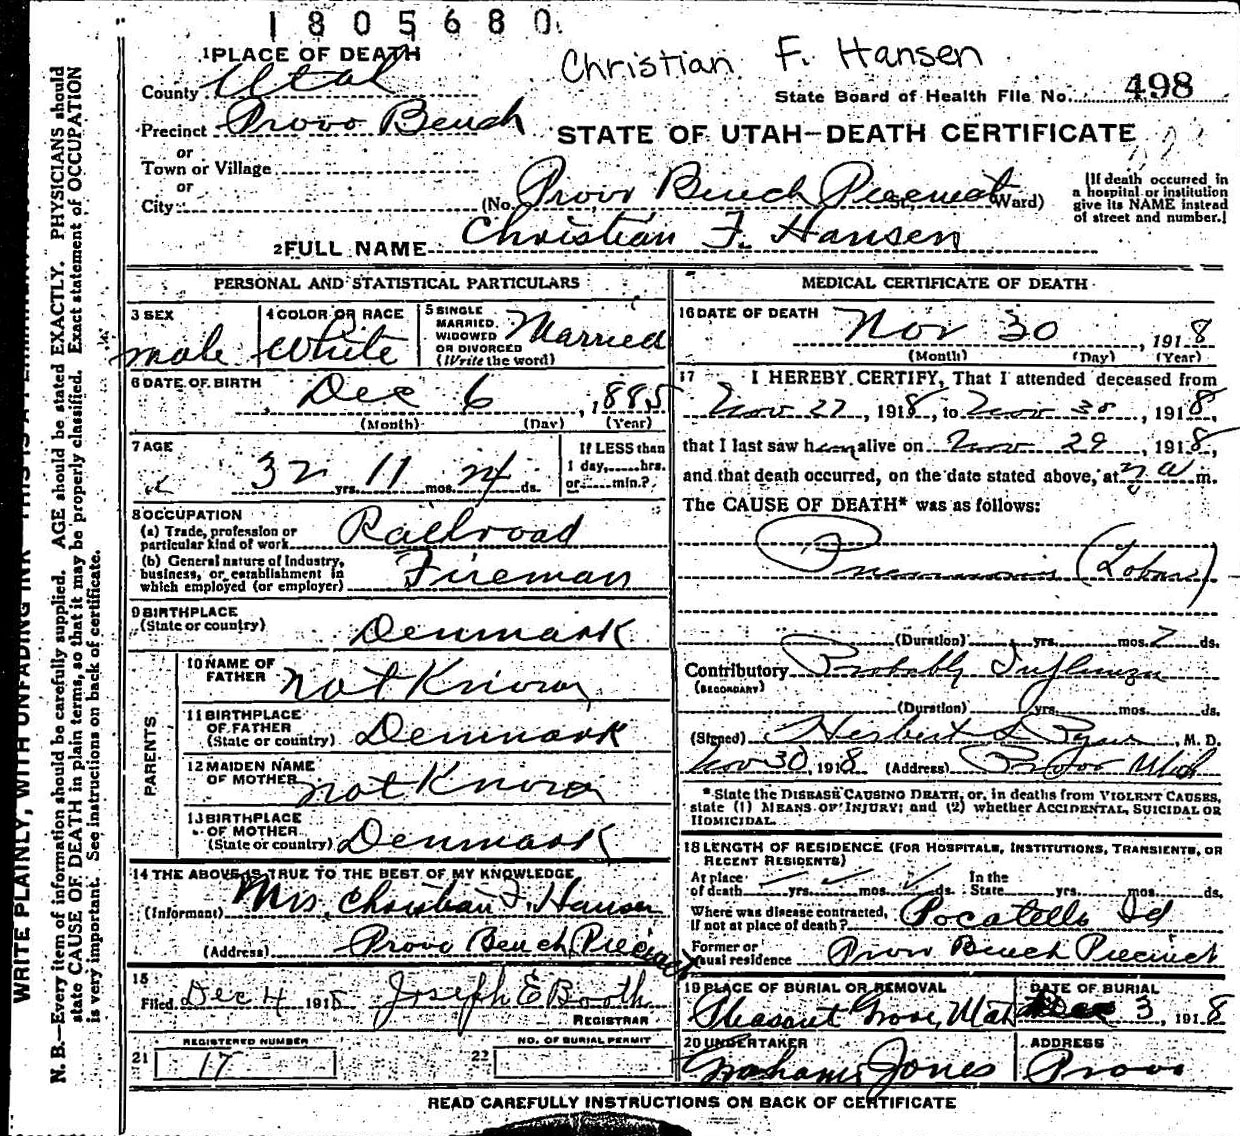 1805680
Christian F. Hansen
1 PLACE OF DEATH
County Utah
State Board of Health File No. 498
Precinct Provo Bench
STATE OF UTAH—DEATH CERTIFICATE
or
Town or Village
or
City (No. Provo Bench Precinct Ward)
[If death occurred in
a hospital or institution
give its NAME instead
of street and number.]
2 FULL NAME Christian F. Hansen
PERSONAL AND STATISTICAL PARTICULARS
3 SEX
male
4 COLOR OR RACE
White
5 SINGLE
MARRIED,
WIDOWED
OR DIVORCED
(Write the word)
Married
6 DATE OF BIRTH
Dec 6, 1885
(Month) (Day) (Year)
7 AGE
32 yrs. 11 mos. 24 ds.
If LESS than
1 day, hrs.
or min.?
8 OCCUPATION
(a) Trade, profession or
particular kind of work Railroad
(b) General nature of Industry,
business, or establishment in
which employed (or employer) Fireman
9 BIRTHPLACE
(State or country) Denmark
PARENTS
10 NAME OF
FATHER not Known
11 BIRTHPLACE
OF FATHER
(State or country) Denmark
12 MAIDEN NAME
OF MOTHER not Known
13 BIRTHPLACE
OF MOTHER
(State or country) Denmark
14 THE ABOVE IS TRUE TO THE BEST OF MY KNOWLEDGE
(Informant) Mrs. Christian F. Hansen
(Address) Provo Bench Precinct
15
Filed Dec 4 1918 Joseph E Booth
REGISTRAR
REGISTERED NUMBER
21 17
NO. OF BURIAL PERMIT
22
MEDICAL CERTIFICATE OF DEATH
16 DATE OF DEATH
Nov 30, 1918
(Month) (Day) (Year)
17 I HEREBY CERTIFY, That I attended deceased from
Nov 22, 1918, to Nov 30, 1918,
that I last saw him alive on Nov 29, 1918,
and that death occurred, on the date stated above, at a m.
The CAUSE OF DEATH* was as follows:
Pneumonia (Lobar)
(Duration) yrs. mos. 7 ds.
Contributory Probably Influenza
(SECONDARY)
(Duration) yrs. mos. ds.
(Signed) Herbert S Pyne, M. D.
Nov 30, 1918 (Address) Provo Utah
* State the DISEASE CAUSING DEATH, or, in deaths from VIOLENT CAUSES,
state (1) MEANS OF INJURY; and (2) whether ACCIDENTAL, SUICIDAL OR
HOMICIDAL.
18 LENGTH OF RESIDENCE (FOR HOSPITALS, INSTITUTIONS, TRANSIENTS, OR
RECENT RESIDENTS)
At place In the
of death yrs. mos. ds. State yrs. mos. ds.
Where was disease contracted,
If not at place of death? Pocatello Id
Former or
usual residence Provo Bench Precinct
19 PLACE OF BURIAL OR REMOVAL
Pleasant Grove, Utah
DATE OF BURIAL
Dec 3, 1918
20 UNDERTAKER
Graham Jones
ADDRESS
Provo
READ CAREFULLY INSTRUCTIONS ON BACK OF CERTIFICATE
WRITE PLAINLY, WITH UNFADING INK—THIS IS A PERMANENT
N. B.—Every item of information should be carefully supplied. AGE should be stated EXACTLY. PHYSICIANS should
state CAUSE OF DEATH in plain terms, so that it may be properly classified. Exact statement of OCCUPATION
is very important. See instructions on back of certificate.